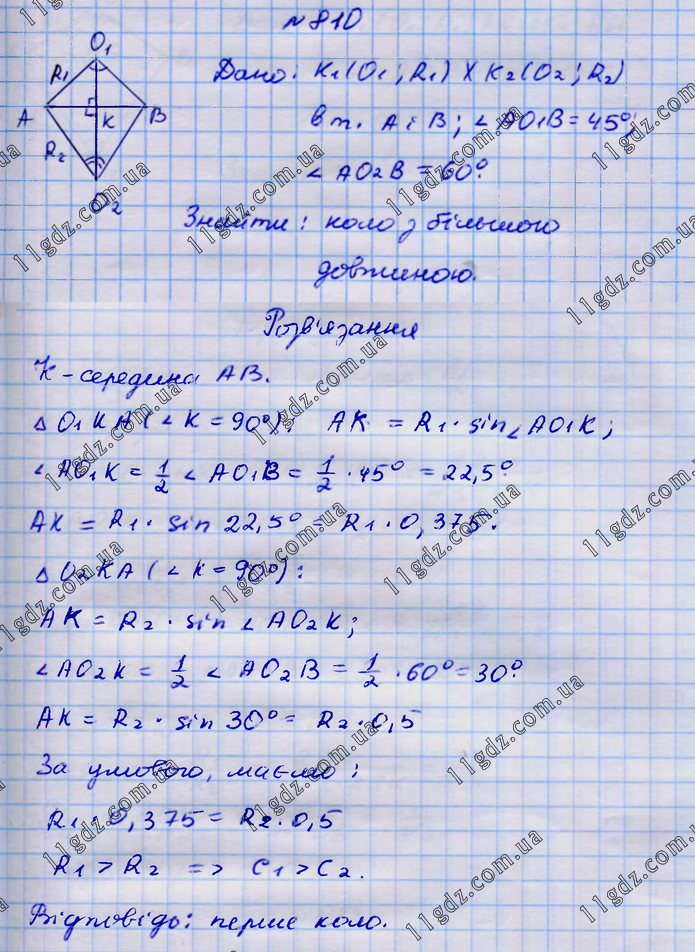 № 810
O₁
R₁
A
K
B
R₂
O₂
Дано: K₁(O₁; R₁) X K₂(O₂; R₂)
в т. A і B; ∠AO₁B = 45°;
∠AO₂B = 60°.
Знайти: коло з більшою
довжиною.
Розв'язання
K - середина AB.
△O₁KA (∠K = 90°): AK = R₁ · sin∠AO₁K;
∠AO₁K = 1/2 ∠AO₁B = 1/2 · 45° = 22,5°
AK = R₁ · sin 22,5° = R₁ · 0,375.
△O₂KA (∠K = 90°):
AK = R₂ · sin∠AO₂K;
∠AO₂K = 1/2 ∠AO₂B = 1/2 · 60° = 30°.
AK = R₂ · sin 30° = R₂ · 0,5
За умовою, маємо:
R₁ · 0,375 = R₂ · 0,5
R₁ > R₂ => C₁ > C₂.
Відповідь: перше коло.
11gdz.com.ua